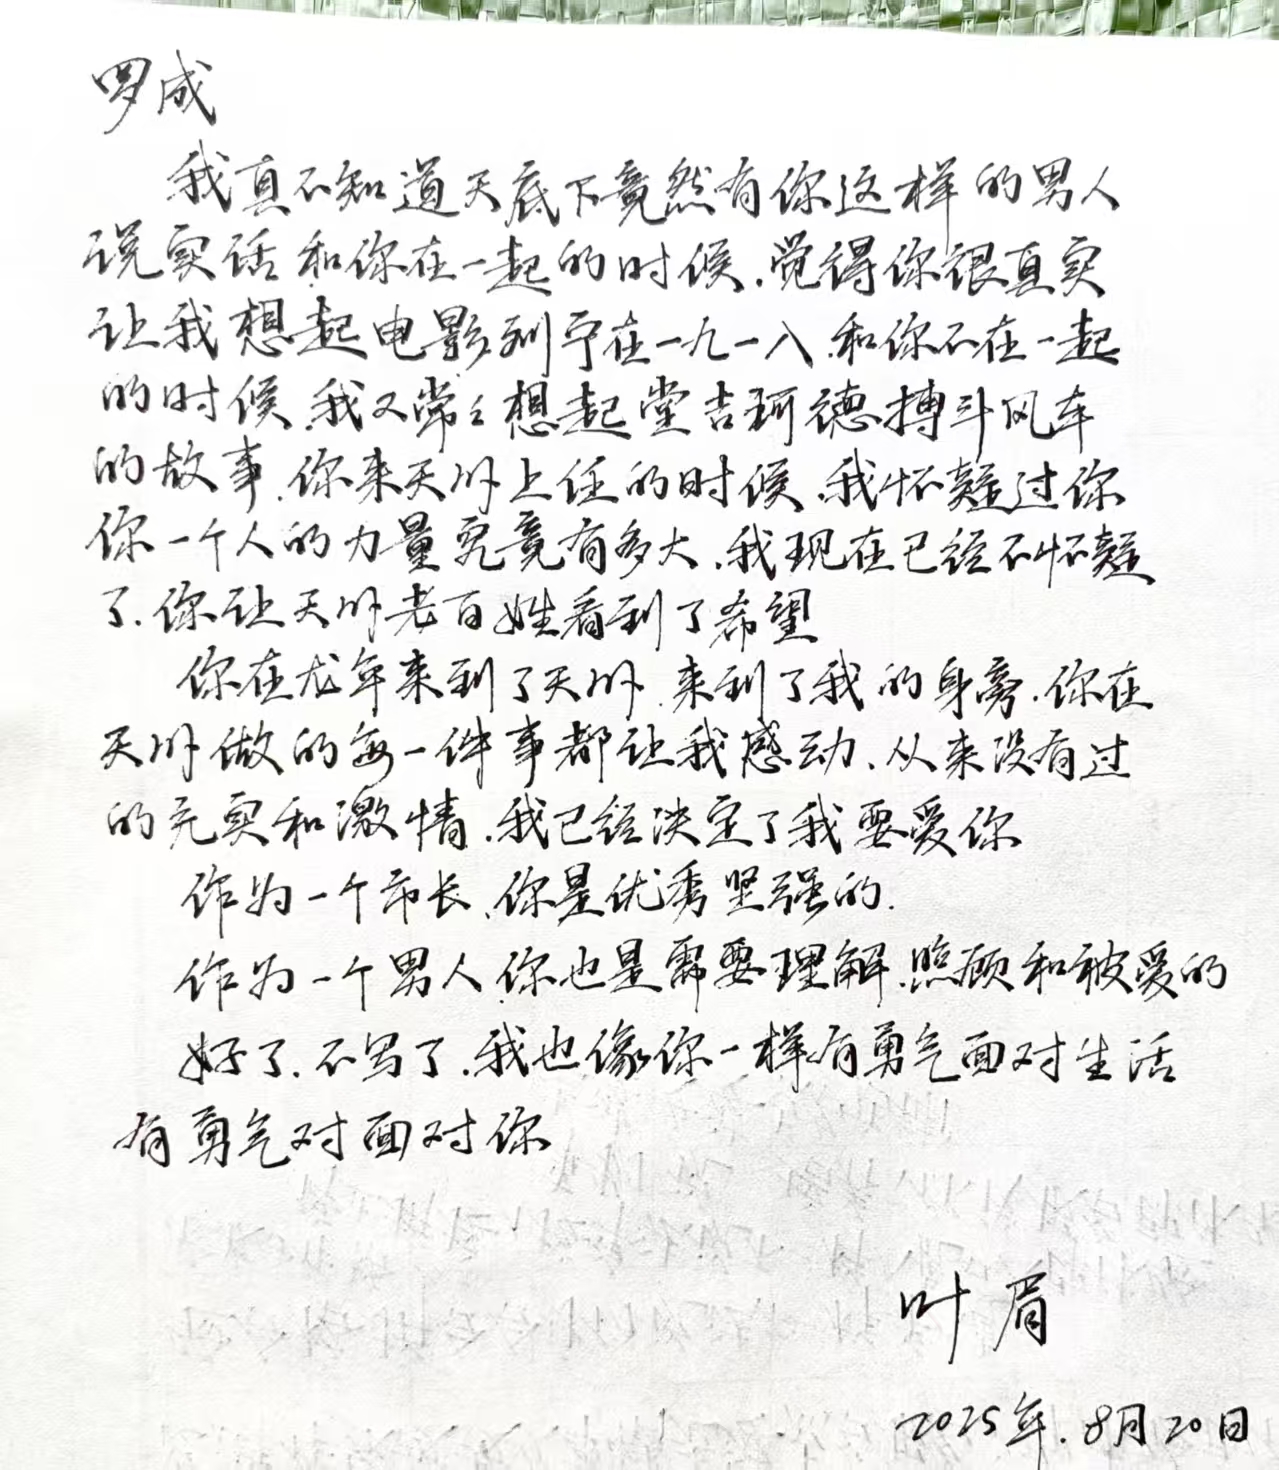 罗成
我真不知道天底下竟然有你这样的男人
说实话和你在一起的时候、觉得你很真实
让我想起电影列宁在一九一八、和你不在一起
的时候、我又常々想起堂吉珂德搏斗风车
的故事、你来天州上任的时候、我怀疑过你
你一个人的力量究竟有多大、我现在已经不怀疑
了、你让天州老百姓看到了希望
你在龙年来到了天州、来到了我的身旁、你在
天州做的每一件事都让我感动、从来没有过
的充实和激情、我已经决定了我要爱你
作为一个市长、你是优秀坚强的.
作为一个男人、你也是需要理解、照顾和被爱的
好了、不写了、我也像你一样有勇气面对生活
有勇气对面对你
叶眉
2025年.8月20日